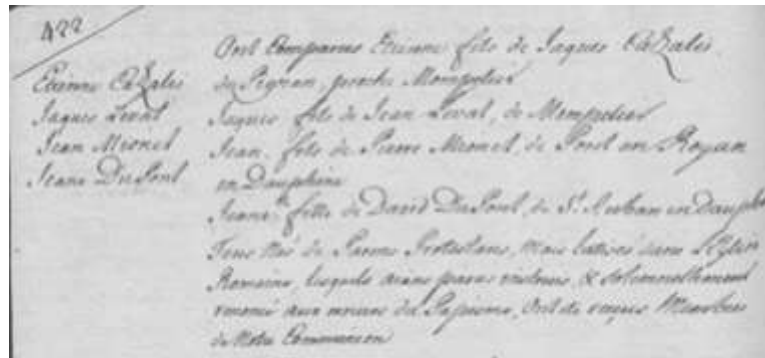 422
Etienne Cazalis
Jaques Leval
Jean Mionet
Jeane DuPont
Ont Comparus Etienne fils de Jaques Cazalis
de Peyran, proche Monpelier
Jaques fils de Jean Leval, de Monpelier
Jean, fils de Pierre Mionet, de Pont en Royan
en Dauphine
Jeane fille de David DuPont, de St. Auban en Dauphi
Tous Nés de Parens Protestans, mais batisés dans l'Eglise
Romaine, lesquels aians parus instruis, & solemnellement
renoncé aux erreurs du Papisme, Ont été reçus Membres
de Notre Communion